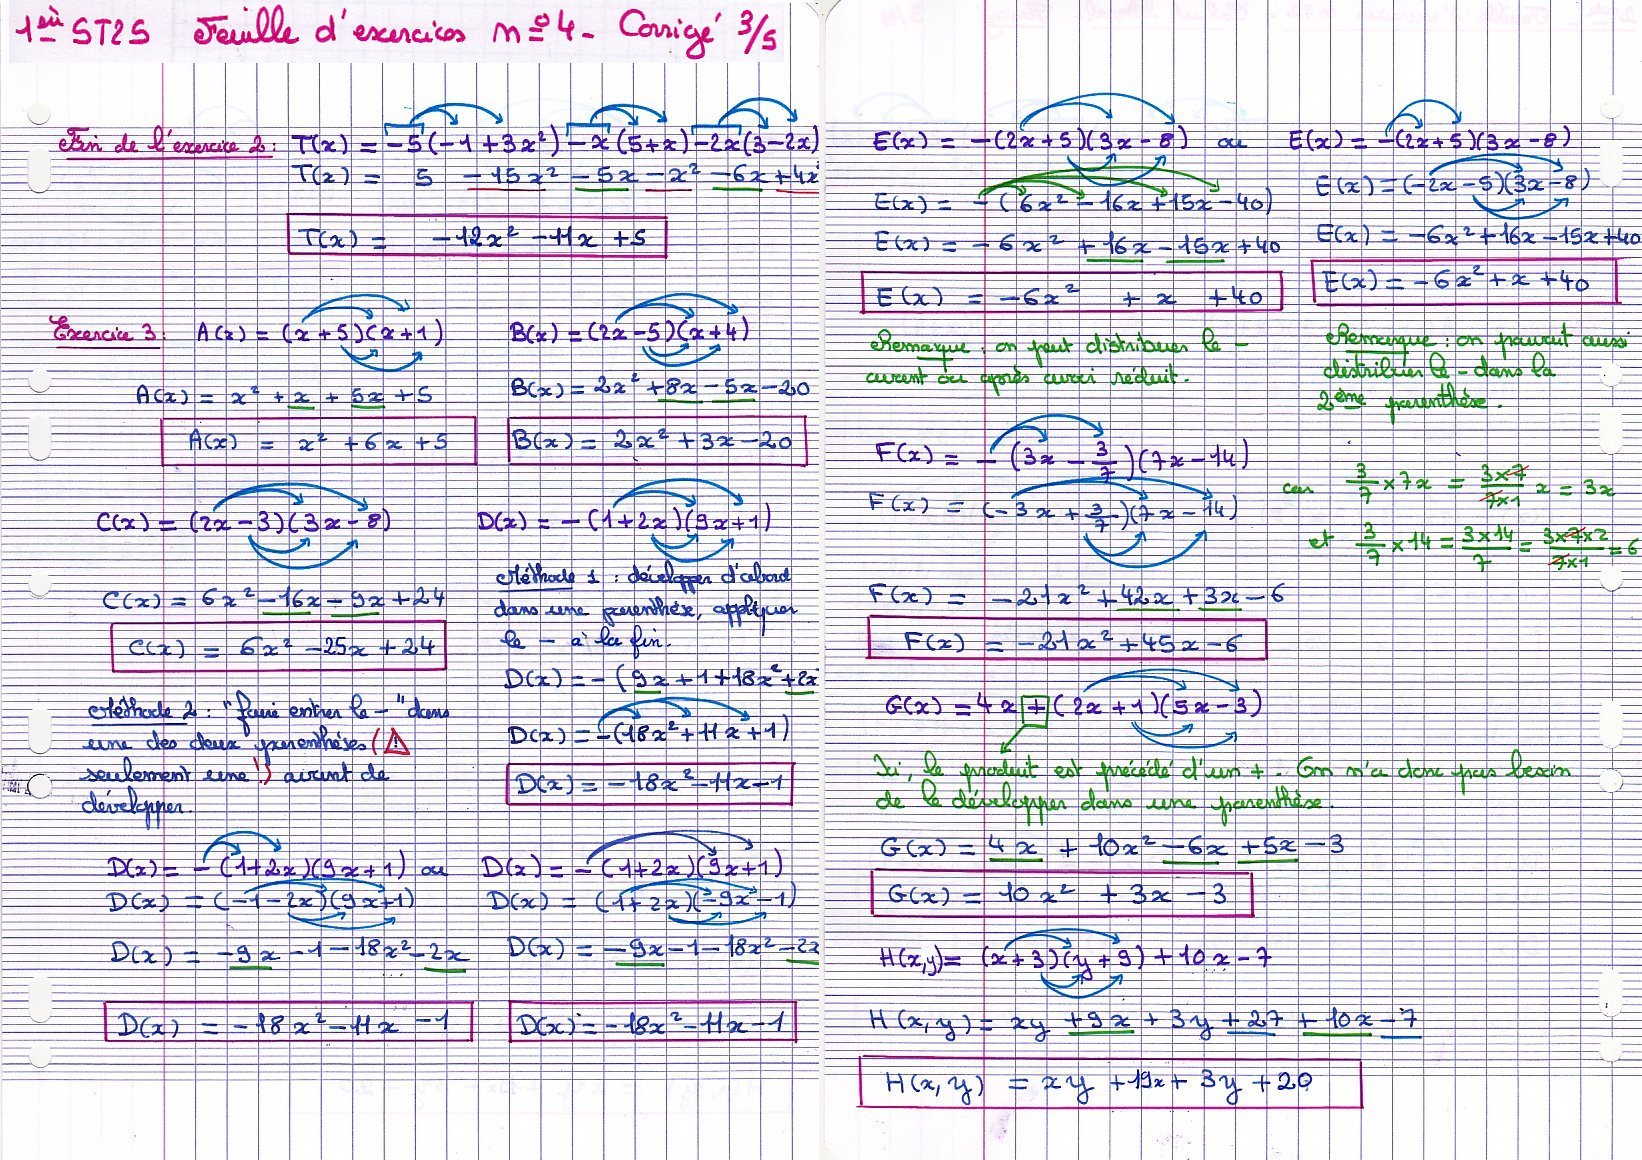 1ère ST2S Feuille d'exercices n°4 - Corrigé 3/5
Fin de l'exercice 2 : T(x) = -5(-1+3x²) -x(5+x) -2x(3-2x)
T(x) = 5 -15x² -5x -x² -6x +4x
T(x) = -12x² -11x +5
Exercice 3 : A(x) = (x+5)(x+1)
A(x) = x² + x + 5x +5
A(x) = x² +6x +5
B(x) = (2x-5)(x+4)
B(x) = 2x² +8x -5x -20
B(x) = 2x² +3x -20
C(x) = (2x-3)(3x-8)
C(x) = 6x² -16x -9x +24
C(x) = 6x² -25x +24
D(x) = -(1+2x)(9x+1)
Méthode 1 : développer d'abord
dans une parenthèse, appliquer
le - à la fin.
D(x) = -(9x+1+18x²+2x
D(x) = -(18x²+11x+1)
D(x) = -18x²-11x-1
Méthode 2 : "faire entrer le -" dans
une des deux parenthèses (⚠
seulement une !) avant de
développer.
D(x) = -(1+2x)(9x+1) ou
D(x) = (-1-2x)(9x+1)
D(x) = -9x -1 -18x² -2x
D(x) = -18x² -11x -1
D(x) = -(1+2x)(9x+1)
D(x) = (1+2x)(-9x-1)
D(x) = -9x -1 -18x² -2x
D(x) = -18x² -11x -1
E(x) = -(2x+5)(3x-8) ou
E(x) = -(6x² -16x +15x -40)
E(x) = -6x² +16x -15x +40
E(x) = -6x² + x +40
Remarque : on peut distribuer le -
avant ou après avoir réduit.
E(x) = -(2x+5)(3x-8)
E(x) = (-2x-5)(3x-8)
E(x) = -6x² +16x -15x +40
E(x) = -6x² + x +40
Remarque : on pouvait aussi
distribuer le - dans la
2ème parenthèse.
F(x) = -(3x - 3/7)(7x-14)
F(x) = (-3x + 3/7)(7x-14)
car 3/7 × 7x = 3×7/7×1 x = 3x
et 3/7 × 14 = 3×14/7 = 3×7×2/7×1 = 6
F(x) = -21x² +42x +3x -6
F(x) = -21x² +45x -6
G(x) = 4x + (2x+1)(5x-3)
Ici, le produit est précédé d'un +. On n'a donc pas besoin
de le développer dans une parenthèse.
G(x) = 4x + 10x² -6x +5x -3
G(x) = 10x² + 3x -3
H(x,y) = (x+3)(y+9) +10x -7
H(x,y) = xy +9x +3y +27 +10x -7
H(x,y) = xy +19x +3y +20